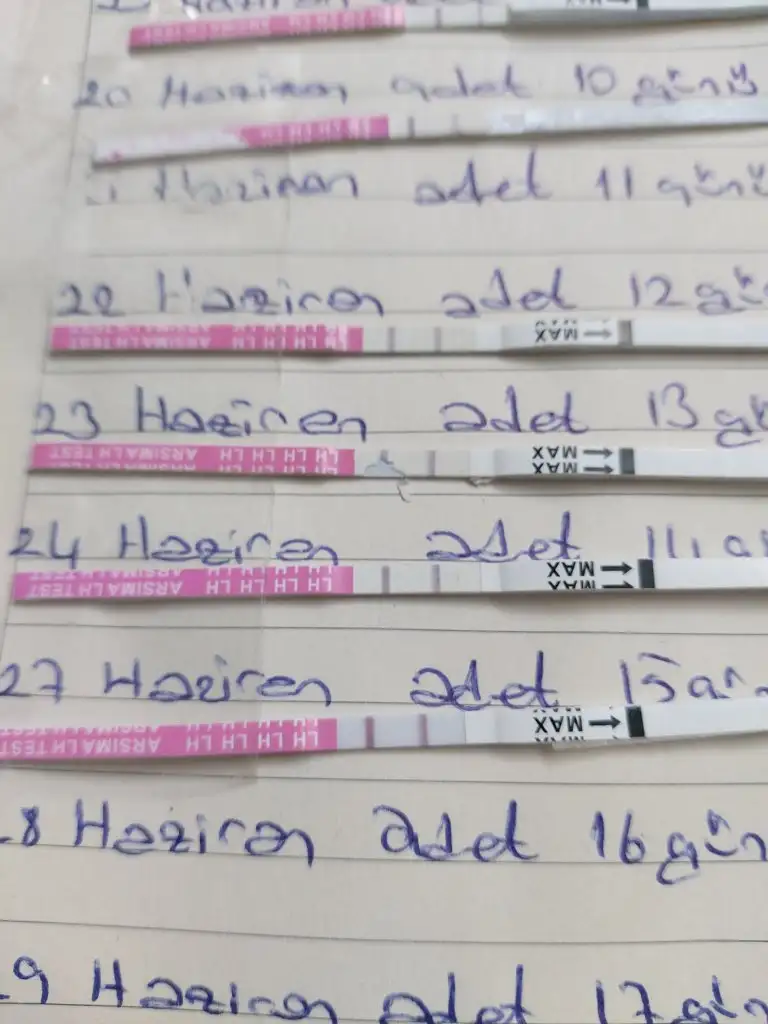 MAX
LH LH LH LH
20 Haziran adet 10 günü
LH LH LH LH
Haziran adet 11 günü
22 Haziran adet 12 gü
LH LH LH LH LH ARSIMA LH TEST
MAX
23 Haziren adet 13 gü
LH LH LH LH ARSIMA LH TEST
MAX
MAX
24 Haziren adet
LH LH LH LH ARSIMA LH TEST
MAX
MAX
27 Haziren adet 15
LH LH LH LH LH ARSIMA LH TEST
MAX
8 Haziran adet 16 gün
9 Haziran adet 17 gün